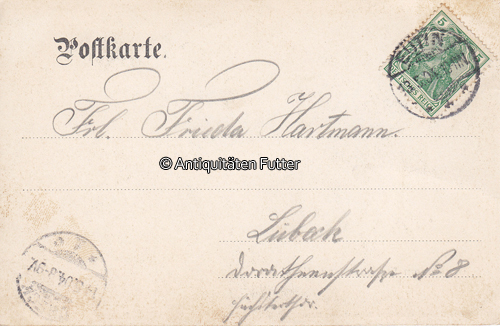 Postkarte.
5
Frl. Frieda Hartmann.
© Antiquitäten Futter
Lübeck
Dorotheenstrasse No 8